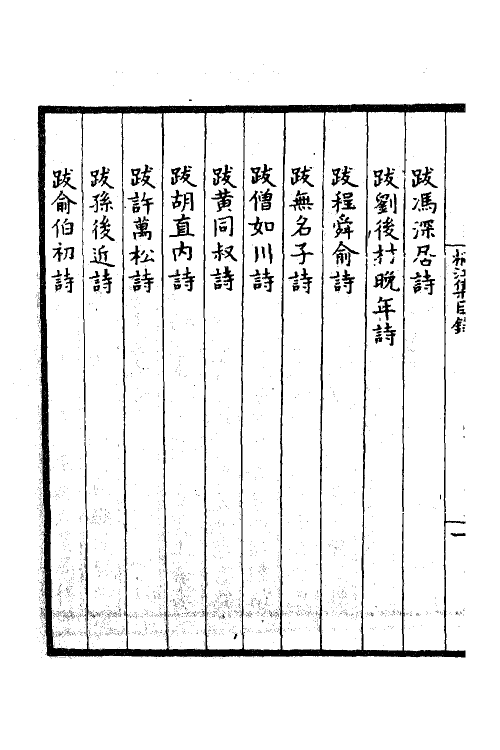 跋馮深居詩
跋劉後村晚年詩
跋程舜俞詩
跋無名子詩
跋僧如川詩
跋黄同叔詩
跋胡直内詩
跋許萬松詩
跋孫後近詩
跋俞伯初詩
江集目錄
一